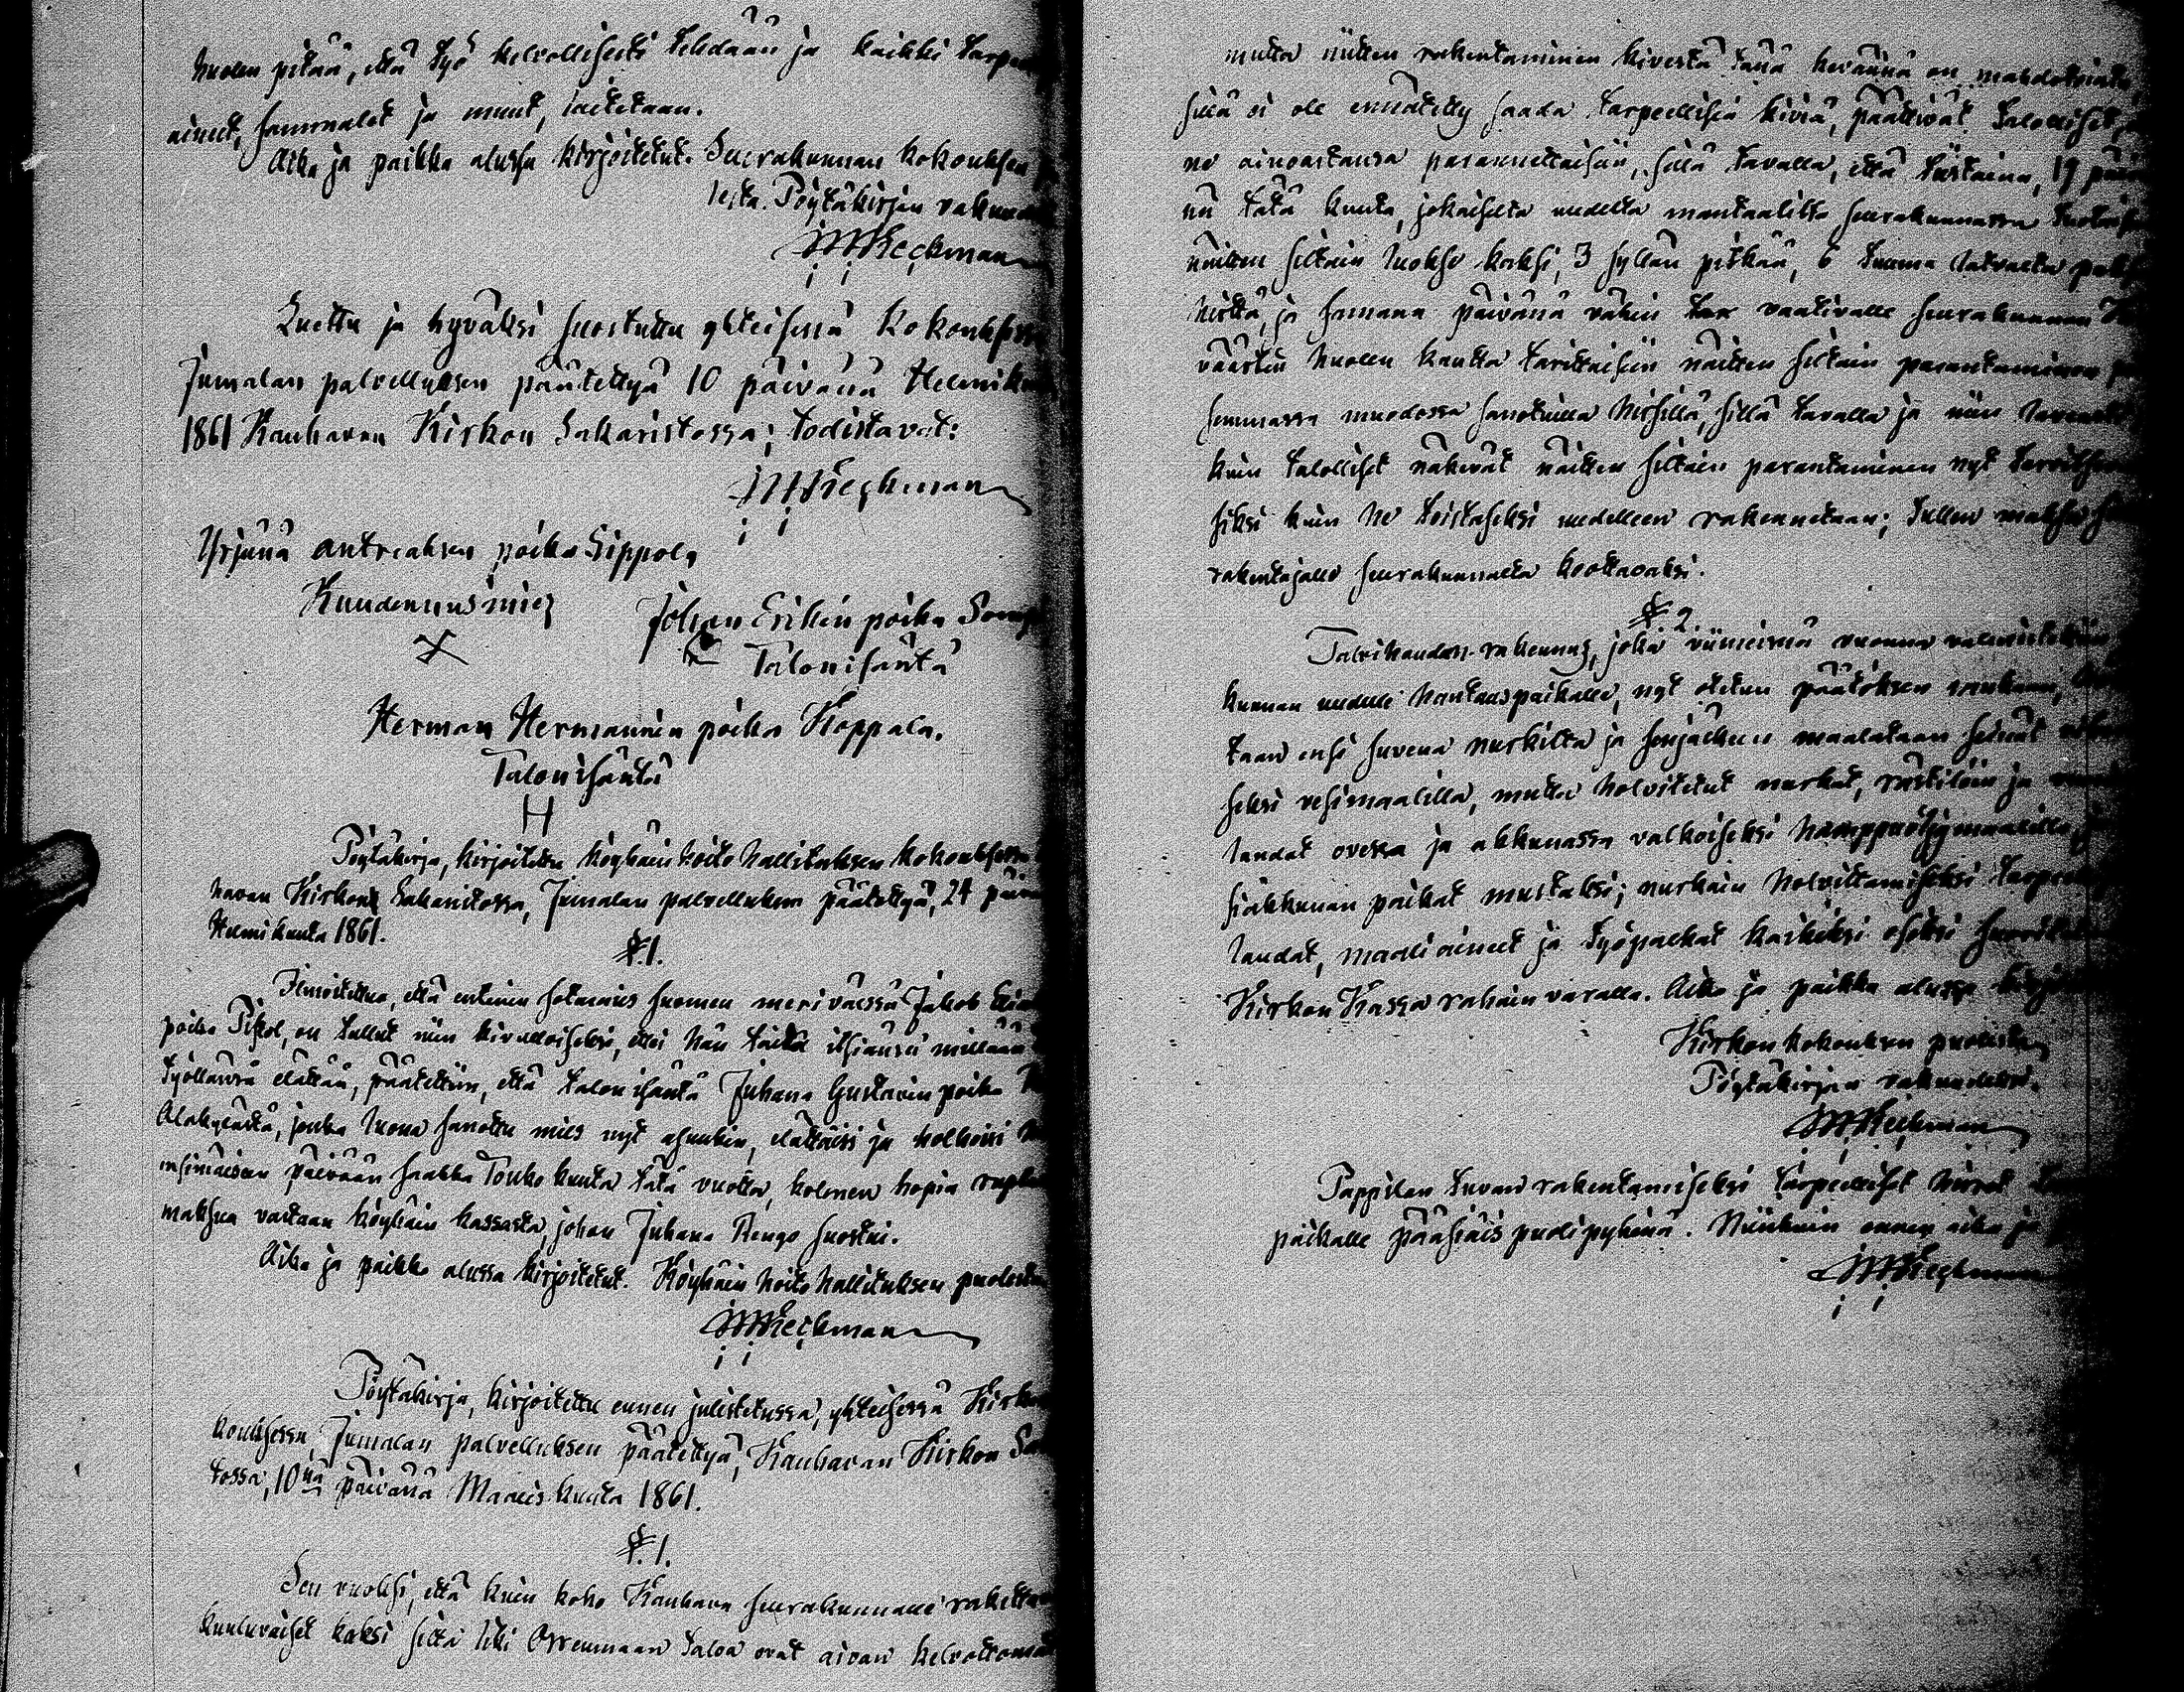 huolen pitää, että työ kelvollisesti tehdään ja kaikki tarpe
aineet, sammalet ja muut, laitetaan.
Aika ja paikka alussa kirjoitetut. Seurakunnan kokouksen
lesta. Pöytäkirjan vakuu
Luettu ja hyväksi suostuttu yhteisessä Kokouksessa
Jumalan palvelluksen päätettyä 10 päivänä Helmiku
1861 Kauhavan Kirkon Sakaristossa; todistavat:
Yrjänä Antreaksen poika Lippola
Kuudennusmies
X
Johan Erikin poika
Talonisäntä
Herman Hermannin poika Koppala.
Talonisäntä
H
Pöytäkirja, kirjoitettu köyhäin hoito hallituksen kokouksessa
havan Kirkon Sakaristossa, Jumalan palvelluksen päätettyä, 24 päivä
Helmikuuta 1861.
§.1.
Ilmoitettua, että entinen sotamies Suomen meriväessä Jakob
poika, on tullut niin kivulloiseksi, ettei hän taida itsiänsä millään
työllänsä elättää, päätettiin, että talonisäntä Juhana Gustavin poika
Alakylästä, jonka luona sanottu mies nyt asuukin, elättäisi ja holhoisi
ensimäiseen päivään saakka Toukokuuta tätä vuotta, kolmen hopia rupla
maksua vastaan köyhäin kassasta, johon Juhana Rengo suostui.
Aika ja paikka alussa kirjoitetut. Köyhäin hoito hallituksen puolesta
Pöytäkirja, kirjoitettu ennen julistetussa, yhteisessä Kirkon
kouksessa, Jumalan palvelluksen päätettyä, Kauhavan Kirkon Sa
tossa, 10nä päivänä Maaliskuuta 1861.
§.1.
Sen vuoksi, että kuin koko Kauhava seurakunnalle rakettav
kuuluvaiset kaksi siltä liki Orrenmaan taloa ovat aivan kelvottomat
mutta niitten rakentaminen kivestä tänä keväänä on mahdotointa,
sillä ei ole ennätetty saada tarpeellisia kiviä, päättivät Talolliset
ne ainoastansa parannettaisiin, sillä tavalla, että tiistaina, 19 päivä
nä tätä kuuta, jokaiselta uudelta mantaalilta seurakunnassa tuotaisi
näitten siltain luokse kaksi, 3 syllän pitkää, 6 tuuma latvasta paksu
hirttä, ja samana päivänä vähin taa vaativalle seurakunnan
väärtin huolen kautta tarittaisiin näitten siltain parantaminen
summassa muodossa sanotuilla hirsillä, sillä tavalla ja niin
kuin talolliset näkevät näitten siltain parantaminen nyt tarvitse
siksi kuin he toistaseksi uudelleen rakennetaan; tullen maksu
rakentajalle seurakunnalta koottavaksi.
§ 2.
Talvihaudan rakennus, joka viimeisnä vuonna valmistettiin
kunnan uudelle hautauspaikalle, nyt otetun päätöksen mukaan,
taan ensi suvena nurkilta ja senjälkeen maalataan seinät
seksi vesimaalilla, mutta holvitetut nurkat, räystilöin ja
laudat ovessa ja akkunassa valkoiseksi hamppuöljymaalilla
siakkunan paikat mustaksi; nurkain holvittamiseksi tarpe
laudat, maaliaineet ja työpalkat kaikeksi osaksi suoritetaan
Kirkon Kassa rahain varalla. Aika ja paikka alussa kirjoi
Kirkon kokouksen puolesta
Pöytäkirjan vakuudeksi.
Pappilan tuvan rakentamiseksi tarpeelliset hirret
paikalle pääsiäis puolipyhinä. Niinkuin ennen aika ja